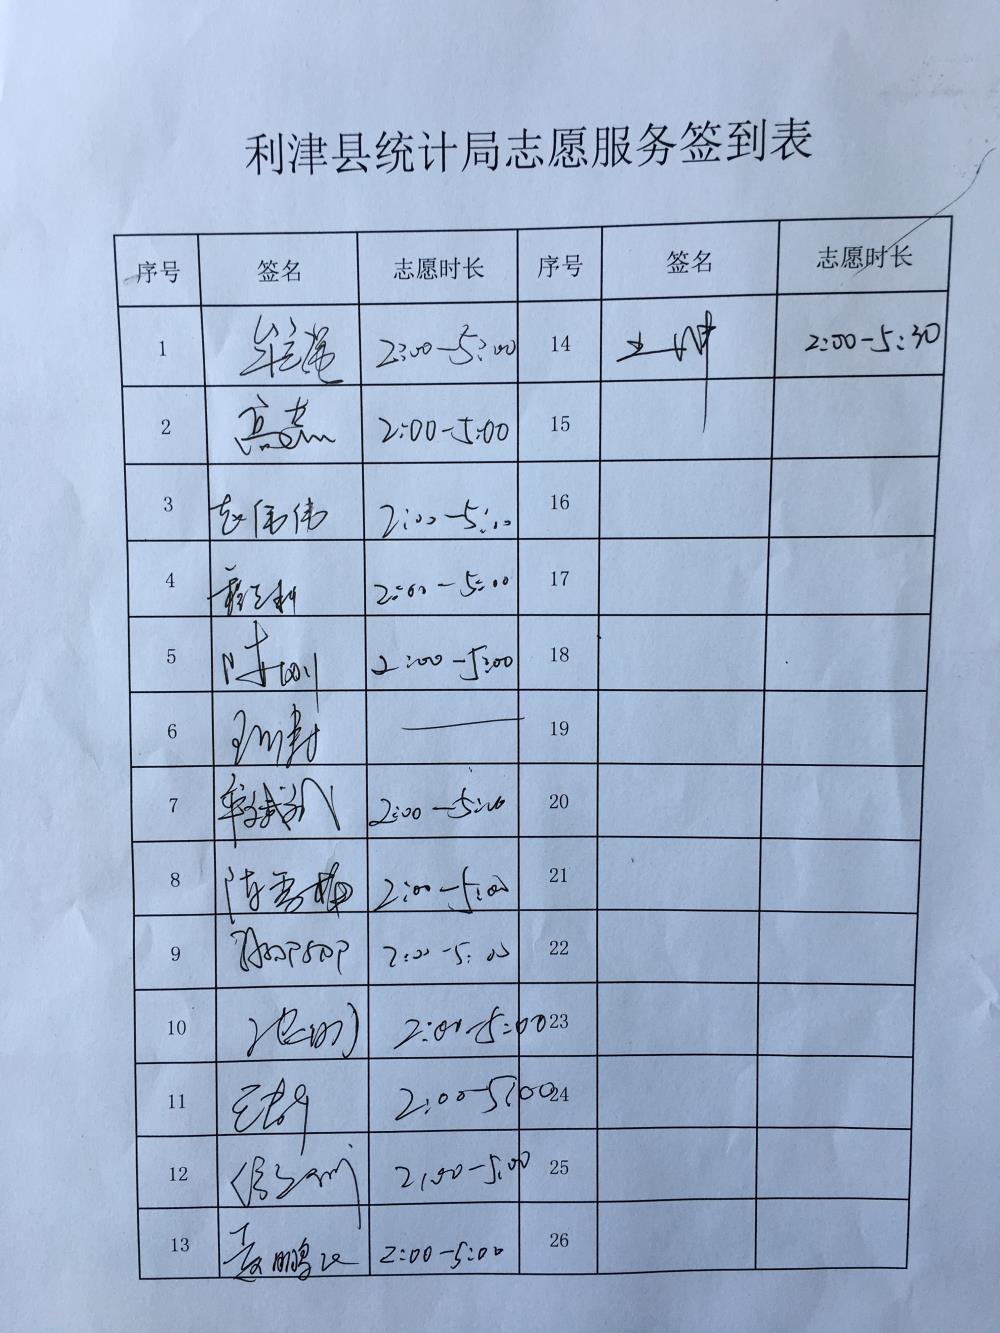 利津县统计局志愿服务签到表
序号 签名 志愿时长 序号 签名 志愿时长
1 2:00-5:00 14 2:00-5:30
2 高燕 2:00-5:00 15
3 赵伟伟 2:00-5:00 16
4 2:00-5:00 17
5 陈刚 2:00-5:00 18
6 — 19
7 2:00-5:00 20
8 陈雪梅 2:00-5:00 21
9 2:00-5:00 22
10 2:00-5:00 23
11 2:00-5:00 24
12 2:00-5:00 25
13 聂鹏飞 2:00-5:00 26